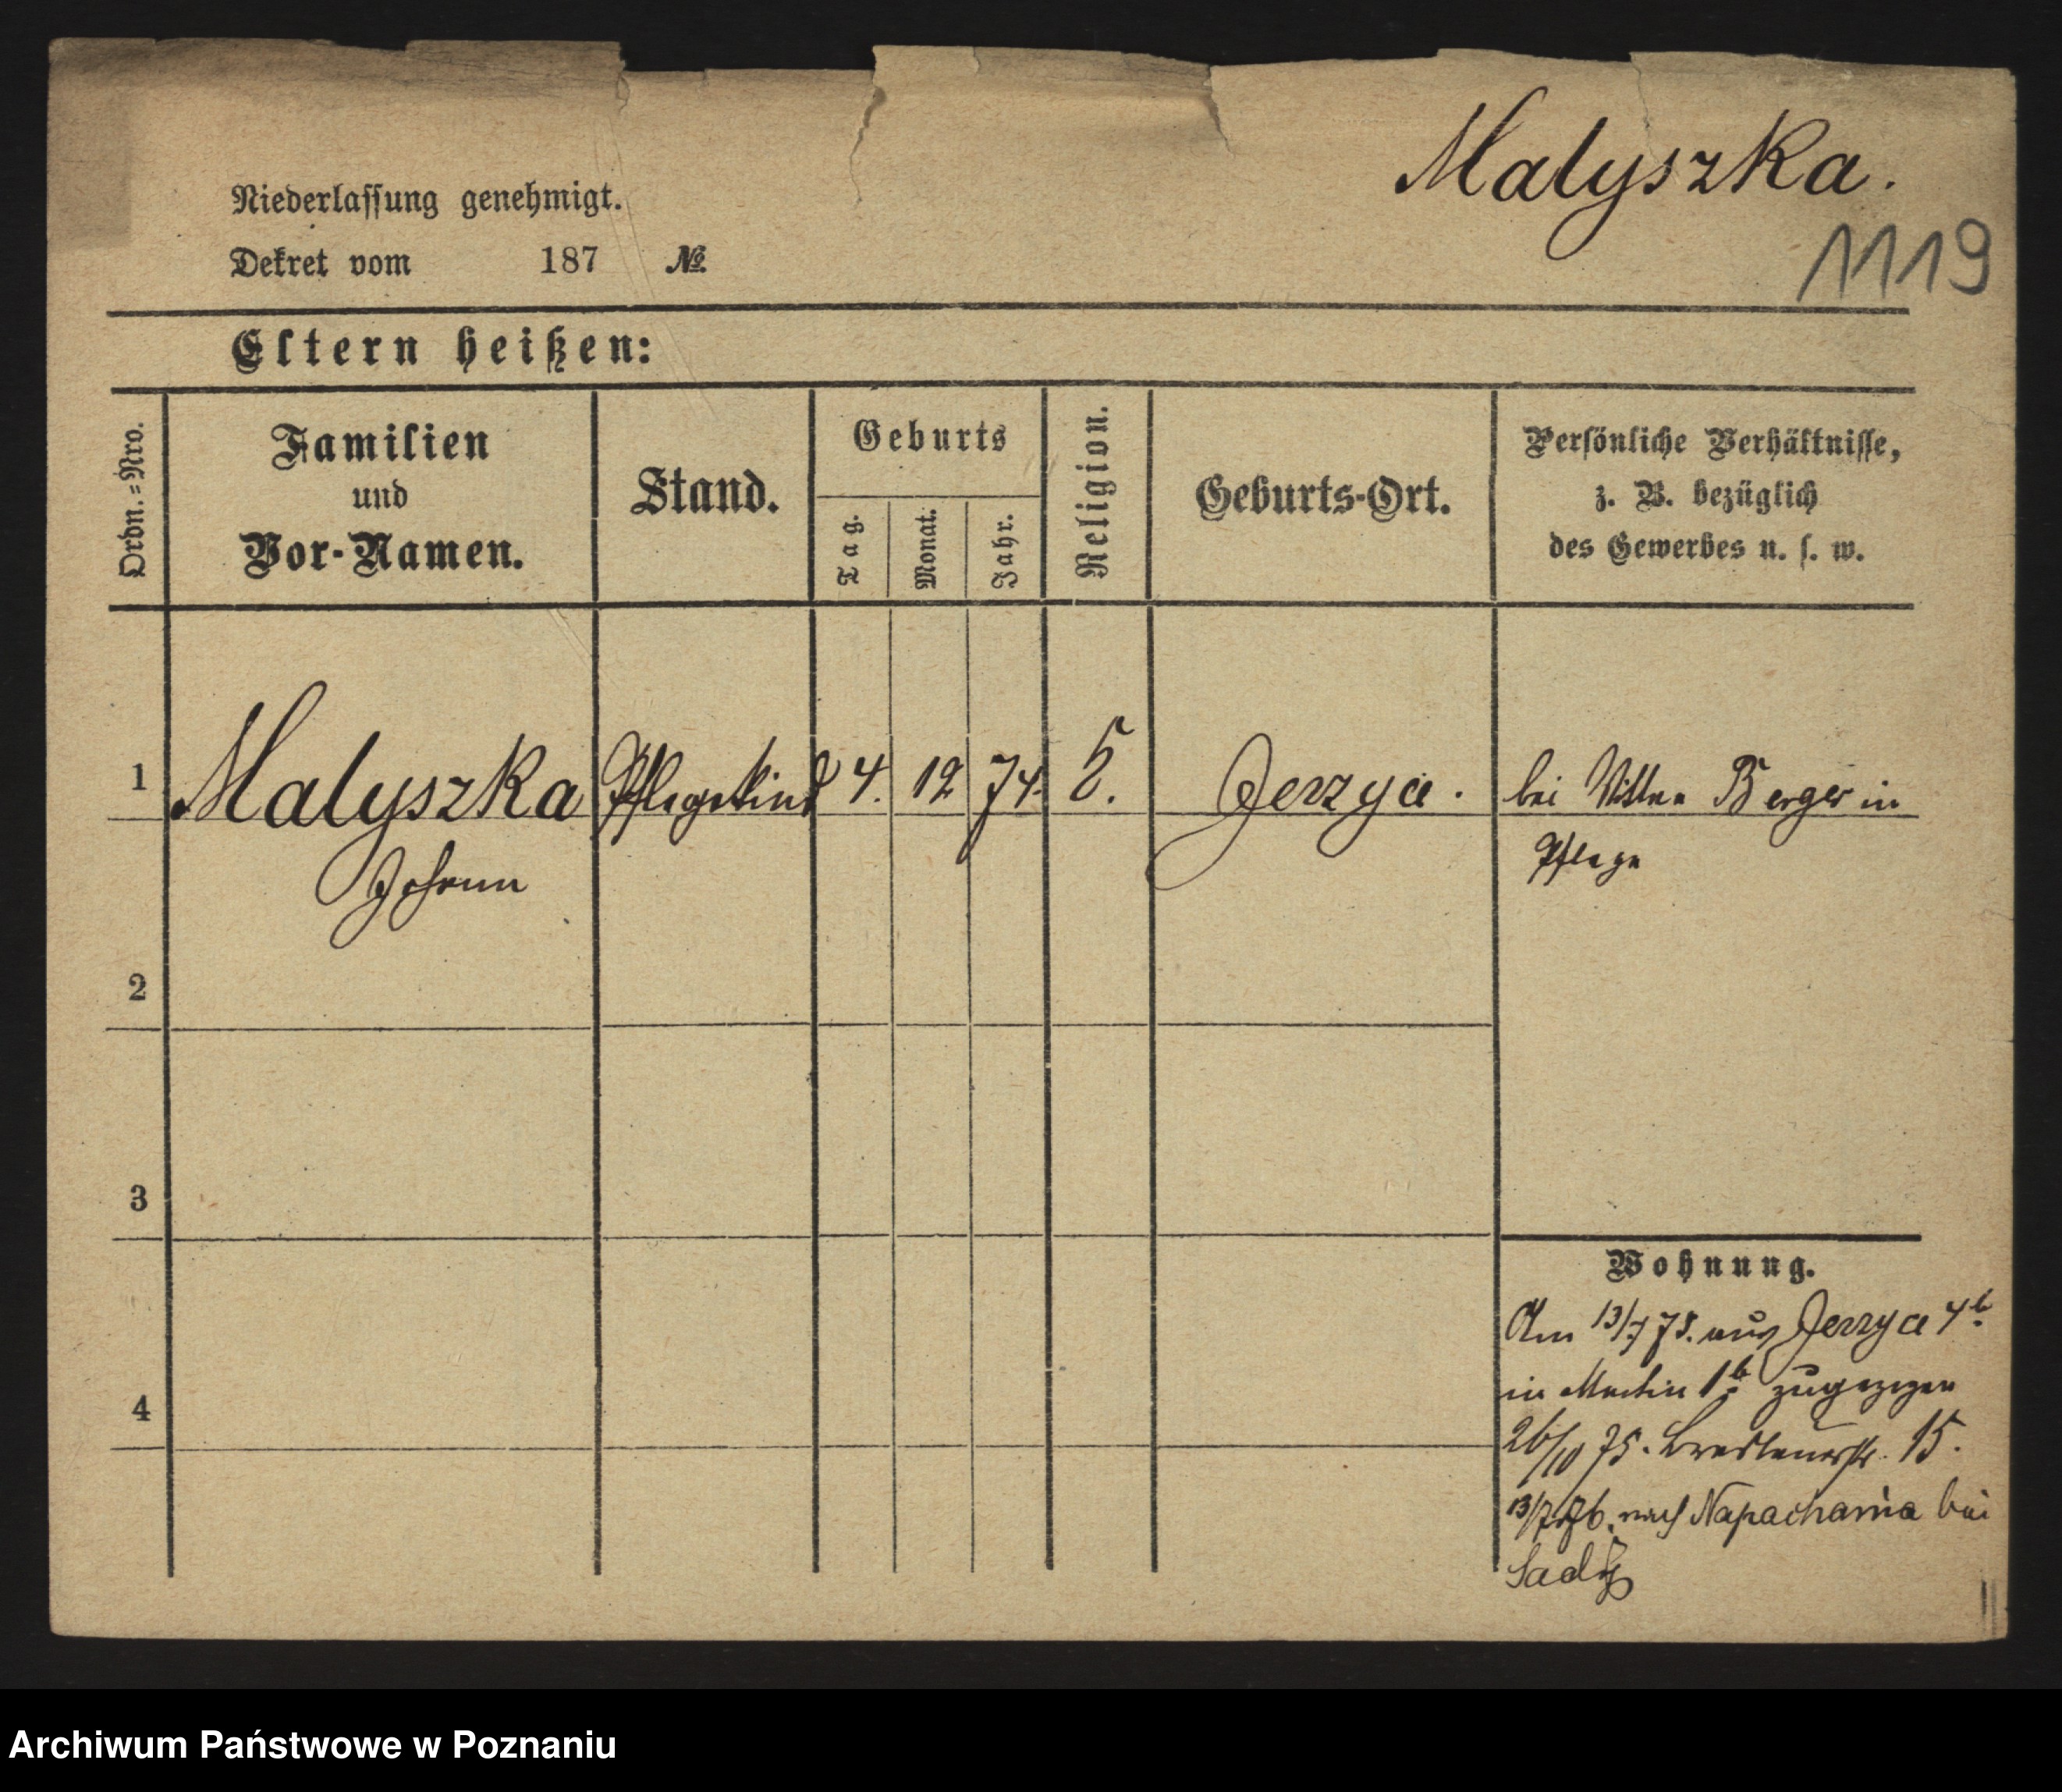 Malyszka.
1119
Niederlassung genehmigt.
Dekret vom 187 №
Eltern heißen:
Ordn.=Nro.
Familien
und
Vor-Namen.
Stand.
Geburts
Tag.
Monat.
Jahr.
Religion.
Geburts-Ort.
Persönliche Verhältnisse,
z. B. bezüglich
des Gewerbes u. s. w.
1 Malyszka Pflegekind 4. 12 74. Jerzyce. bei Berger in
Johann Pflege
2
3
4
Wohnung.
Am 13/7 75. aus Jerzyce 4b
in Martin 1b zugezogen
26/10 75. Breslauerstr. 15.
13/7 76. nach Napachania bei
Archiwum Państwowe w Poznaniu